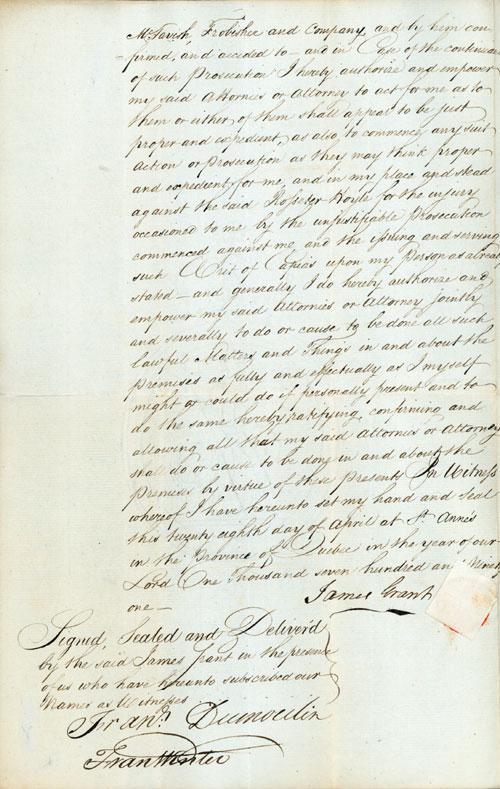 McTavish, Frobisher and Company, and by him con-
firmed, and acceded to – and in Case of the continuance
of such Prosecution I hereby authorize and empower
my said Attornies or Attorney to act for me as to
them or either of them shall appear to be just
proper and expedient, as also to commence any suit
Action or Prosecution as they may think proper
and expedient for me, and in my place and stead
against the said Rosseter Hoyle for the injury
occasioned to me by the unjustifiable Prosecution
commenced against me, and the issuing and serving
such Writ of Capias upon my Person as alread
stated – and generally I do hereby authorize and
empower my said Attornies or Attorney jointly
and severally to do or cause to be done all such
lawful Matters and Things in and about the
Premises as fully and effectually as I myself
might or could do if personally present and to
do the same hereby ratifying, confirming and
allowing all that my said Attornies or Attorney
shall do or cause to be done in and about the
Premises by virtue of these Presents In Witness
whereof I have hereunto set my hand and Seal
this twenty eighth day of April at St. Anne's
in the Province of Quebec in the year of our
Lord One Thousand seven hundred and Ninety
one –
James Grant
Signed, Sealed and Deliver'd
by the said James Grant in the presence
of us who have hereunto subscribed our
Names as Witnesses
Fran.s Dumoulin